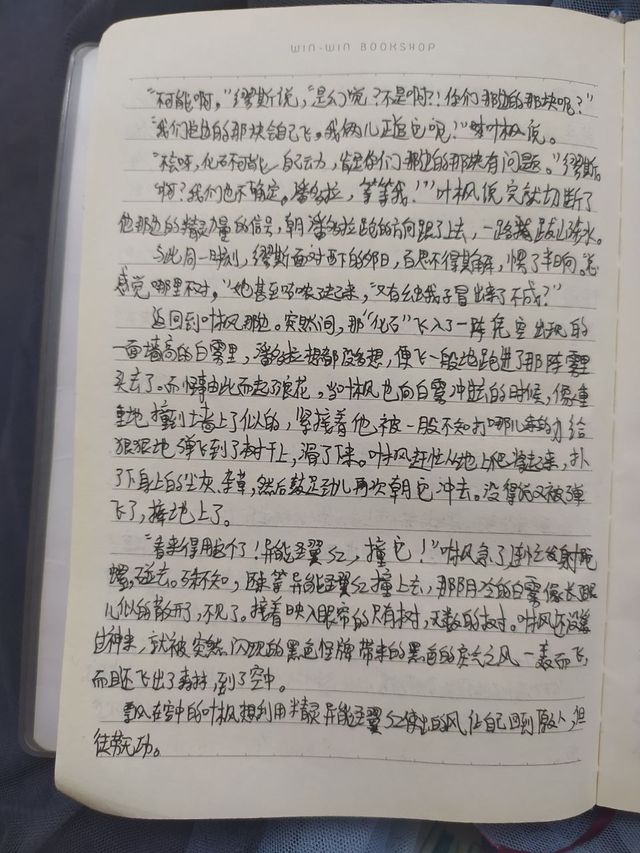 WIN-WIN BOOKSHOP
“不可能啊，”缪斯说，“是幻觉？不是啊？！你们那边的那块呢？”
“我们这边的那块会自己飞。我俩儿正追它呢！”叶枫说。
“不会呀，化石不可能自己动，肯定你们那边的那块有问题。”缪斯。
“啊？我们也不确定。潘多拉，等等我！”叶枫说完就切断了
他那边的精灵力量的信号，朝潘多拉跑的方向跟了上去，一路跋山涉水。
与此同一时刻，缪斯面对西下的夕阳，百思不得其解，愣了半晌。总
感觉哪里不对，“她甚至嘀咕了起来，“又有什么岔子冒出来了不成？”
返回到叶枫那边。突然间，那“化石”飞入了一阵凭空出现的
一面墙高的白雾里，潘多拉想都没想，便飞一般地跑进了那阵雾里
头去了。而怪事由此而起了浪花。当叶枫也向白雾冲去的时候，像重
重地撞到土墙上了似的，紧接着他被一股不知打哪儿来的力给
狠狠地弹飞到了树干上，滑了下来。叶枫赶忙从地上爬将起来，扑
了下身上的尘灰、杂草，然后鼓足劲儿再次朝它冲去。没得说又被弹
飞了，摔地上了。
“看来得用这个了！异能圣翼红，撞它！”叶枫急了连忙发射陀
螺，碰去。殊不知，还未等异能圣翼红撞上去，那阴冷的白雾像长眼
儿似的散开了，不见了。接着映入眼帘的只有树，无数的树。叶枫还没等
过神来，就被突然闪现的黑色怪牌带来的黑色的玄之风一轰而飞，
而且还飞出了森林，到了空中。
飘在空中的叶枫想利用精灵异能圣翼红使出的风让自己回到原处，但
徒劳无功。